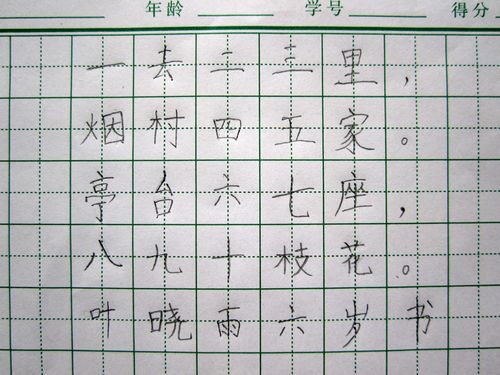 年龄 学号 得分
一去二三里，
烟村四五家。
亭台六七座，
八九十枝花。
叶晓雨六岁书